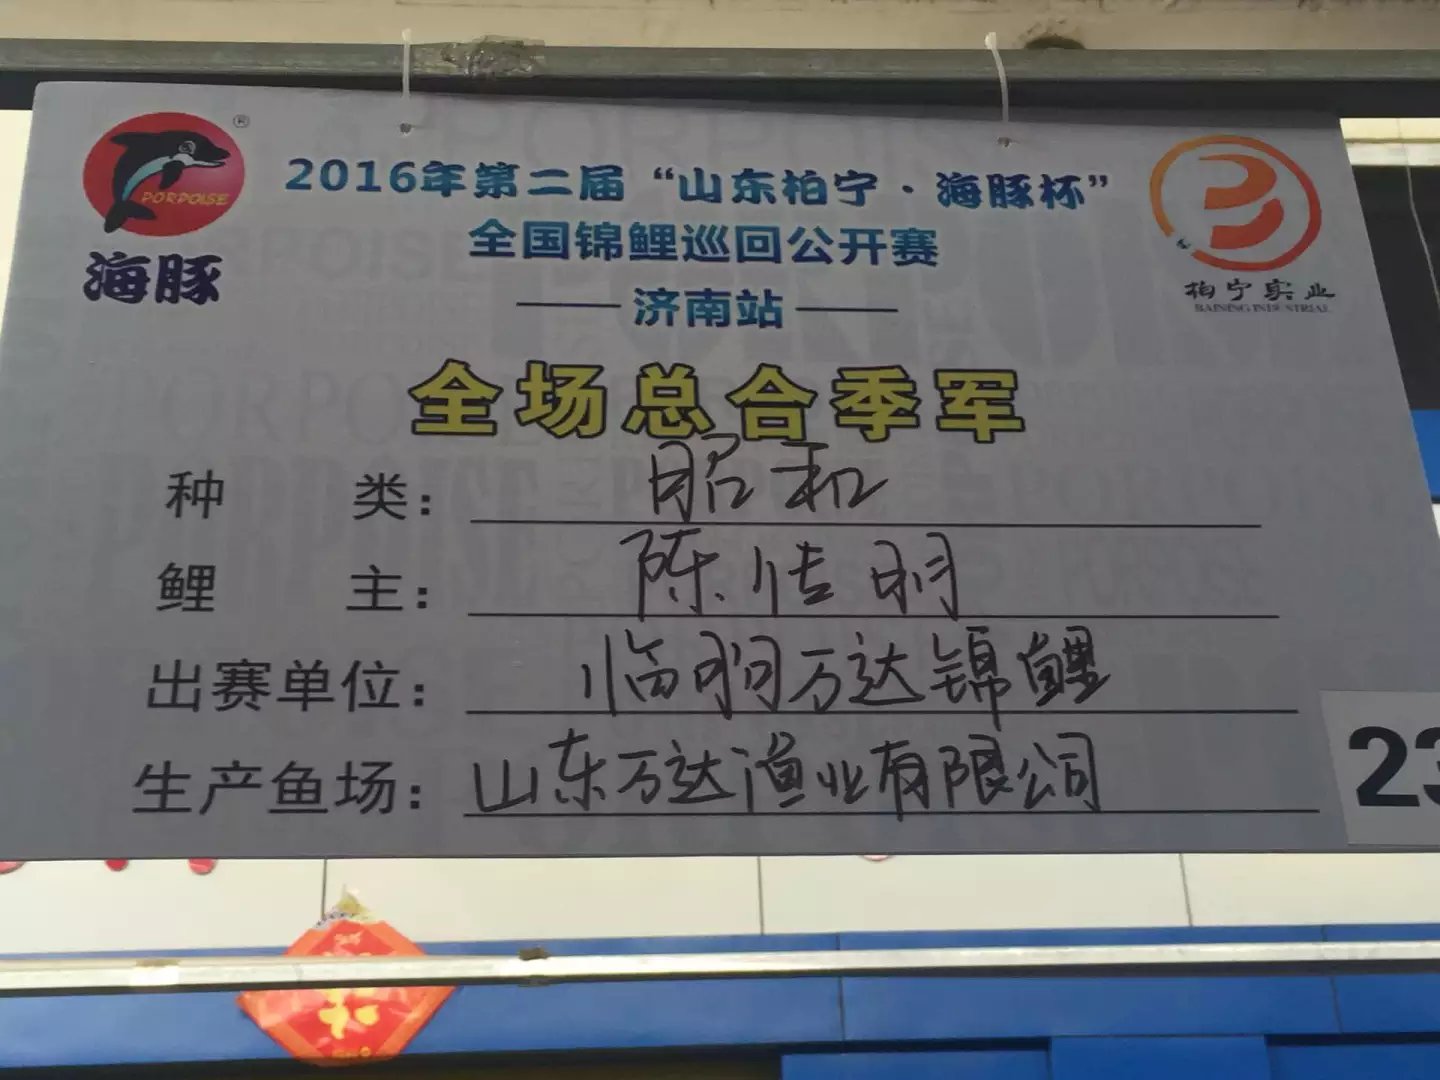 PORPOISE
®
海豚
2016年第二届“山东柏宁·海豚杯”
全国锦鲤巡回公开赛
济南站
柏宁实业
BAINING INDUSTRIAL
全场总合季军
种 类: 昭和
鲤 主: 陈洁羽
出赛单位: 临朐万达锦鲤
生产鱼场: 山东万达渔业有限公司
23